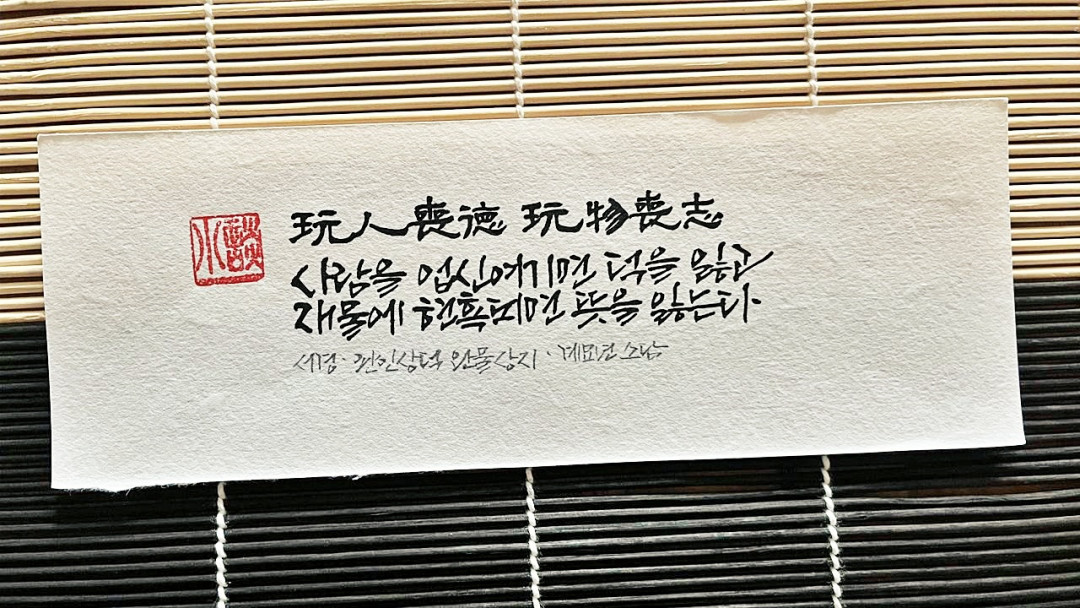 玩人喪德 玩物喪志
사람을 업신여기면 덕을 잃고
재물에 현혹되면 뜻을 잃는다
서경·완인상덕 완물상지·계묘년 소담